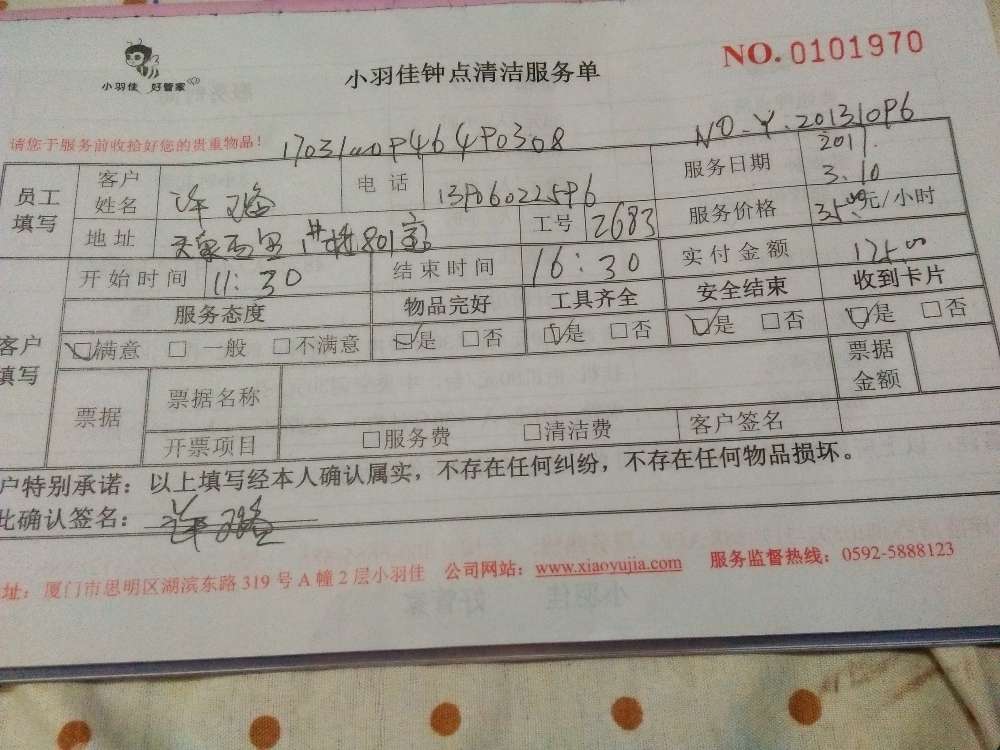 小羽佳 好管家
小羽佳钟点清洁服务单
NO. 0101970
请您于服务前收拾好您的贵重物品!
NO.Y.201310P6
员工填写
客户姓名
电话 13P060225P6
服务日期 2017. 3.10
地址
工号 2683
服务价格 35.00元/小时
客户填写
开始时间 11:30
结束时间 16:30
实付金额 175.00
服务态度 物品完好 工具齐全 安全结束 收到卡片
☑满意 □一般 □不满意 ☑是 □否 ☑是 □否 ☑是 □否 ☑是 □否
票据
票据名称
票据金额
开票项目 □服务费 □清洁费 客户签名
户特别承诺:以上填写经本人确认属实,不存在任何纠纷,不存在任何物品损坏。
此确认签名:
址:厦门市思明区湖滨东路319号A幢2层小羽佳 公司网站:www.xiaoyujia.com 服务监督热线:0592-5888123